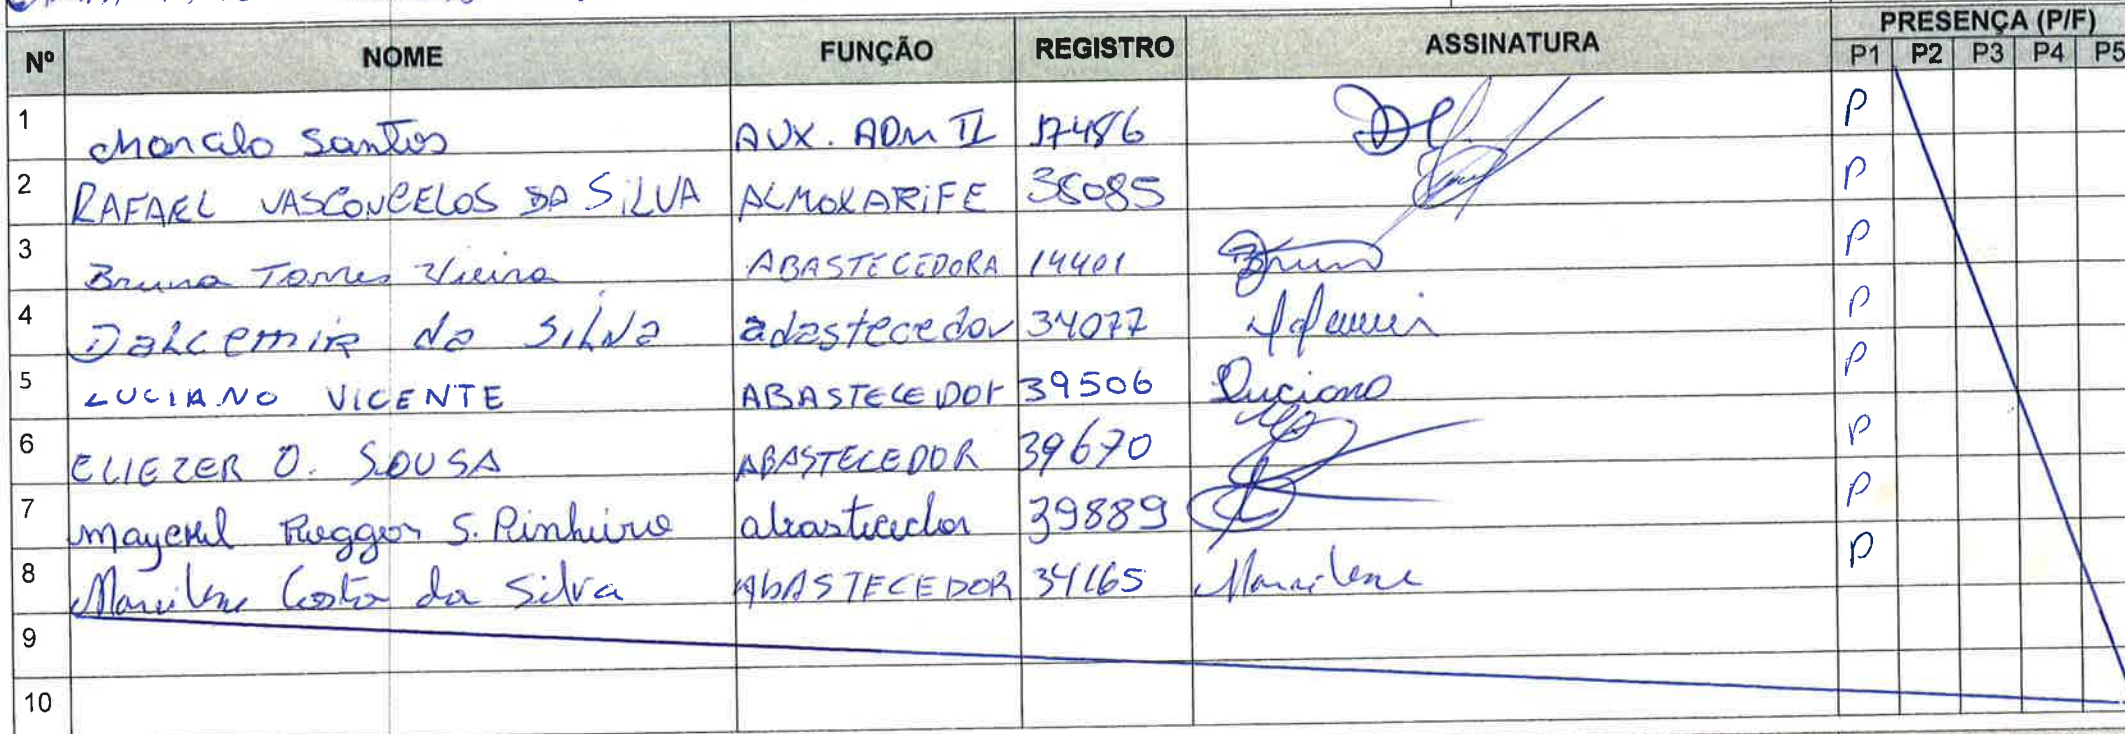 Nº NOME FUNÇÃO REGISTRO ASSINATURA PRESENÇA (P/F)
P1 P2 P3 P4 P5
1 Santos AUX. ADM II 17486 P
2 RAFAEL VASCONCELOS DA SILVA ALMOXARIFE 38085 P
3 Bruna Torres Vieira ABASTECEDORA 14401 Bruna P
4 Dalcemir da Silva adastecedor 34077 P
5 LUCIANO VICENTE ABASTECEDOR 39506 Luciano P
6 ELIEZER O. SOUSA ABASTECEDOR 39670 P
7 S. Pinheiro abastecedor 39889 P
8 Marilene Costa da Silva AbASTECEDOR 34165 Marilene P
9
10